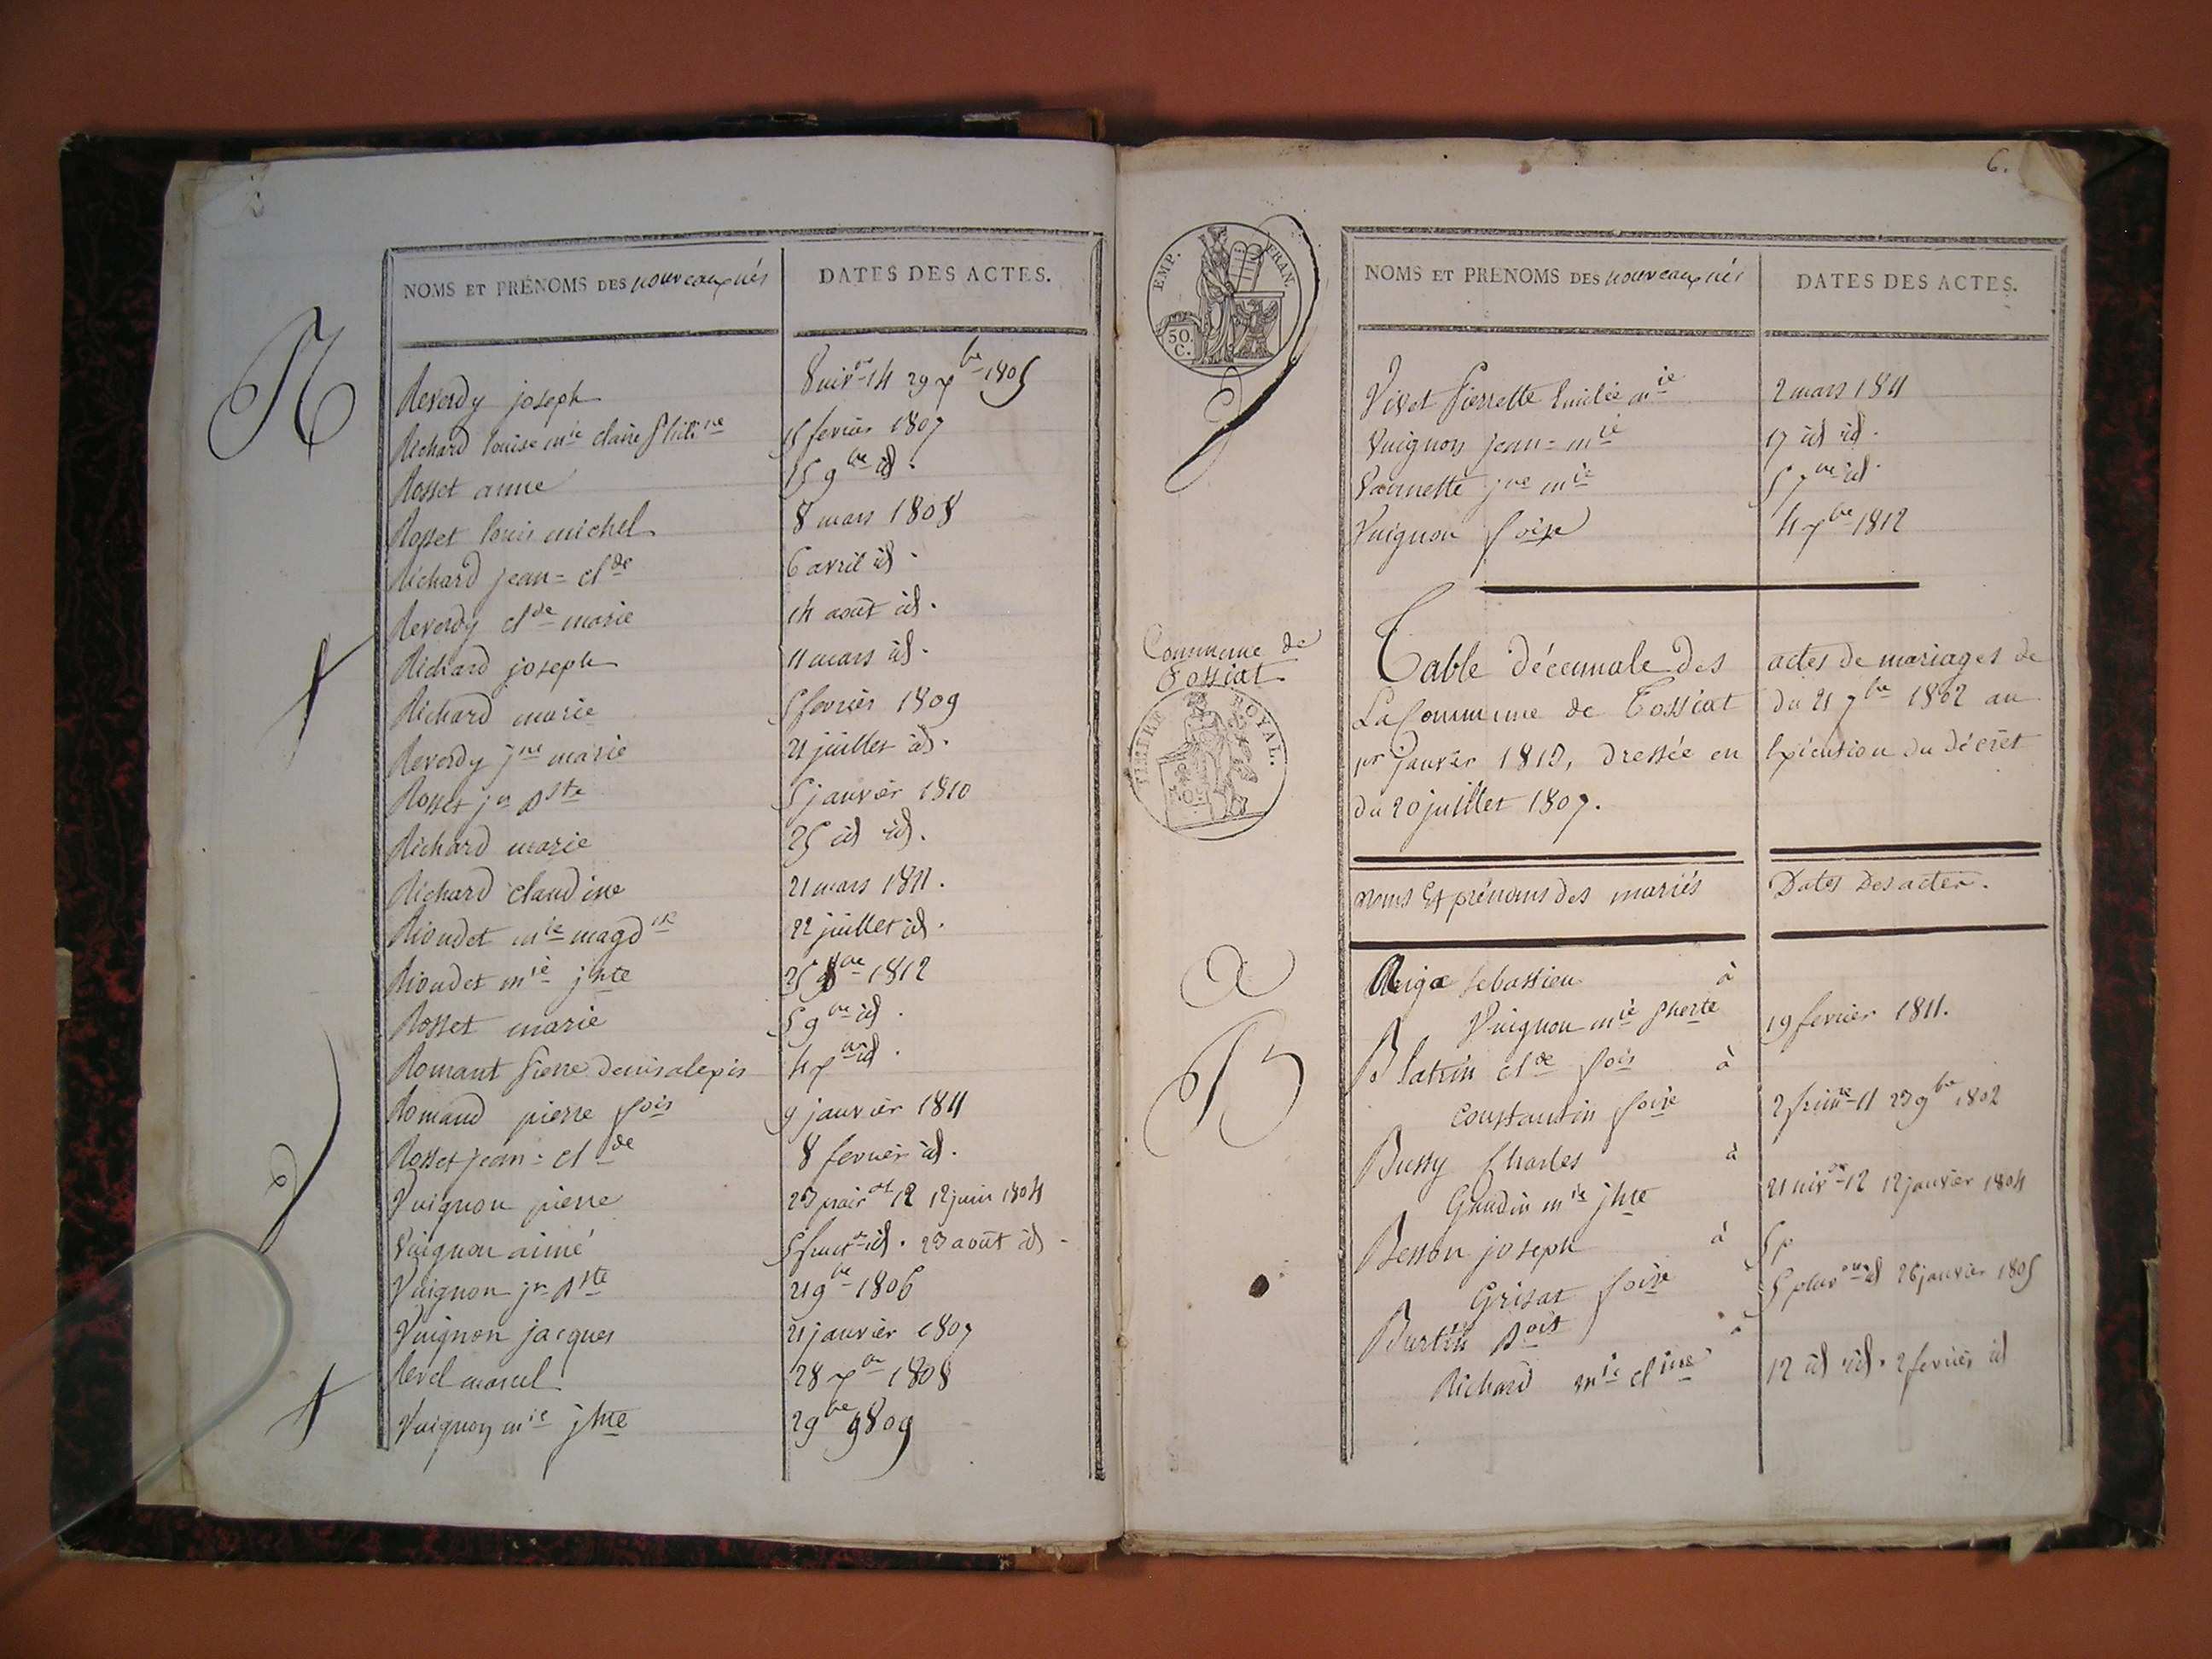 NOMS ET PRÉNOMS DES nouveaux nés
DATES DES ACTES.
R
Reverdy joseph
8 niv.se 14 29 xbre 1805
Richard louise mie claire
15 fevrier 1807
Rosset anne
15 9bre id.
Rosset louis michel
8 mars 1808
Richard jean = clde
6 avril id.
Reverdy clde marie
14 août id.
Richard joseph
11 mars id.
Richard marie
5 fevrier 1809
Reverdy jne marie
21 juillet id.
Rosset jn Bste
5 janvier 1810
Richard marie
25 id id.
Richard claudine
21 mars 1811.
Rioudet mie magdne
22 juillet id.
Rioudet mie jhte
25 8bre 1812
Rosset marie
5 9bre id.
Romant Pierre denis alexis
4 xbre id.
Romand pierre fois
9 janvier 1811
Rosset jean = clde
8 fevrier id.
Vuignon pierre
23 prairal 12 12 juin 1804
Vuignon aimé
5 fructor id. 23 août id.
Vuignon jn Bste
21 9bre 1806
Vuignon jacques
21 janvier 1807
Revel marcel
28 xbre 1808
Vuignon mie jhte
2 9bre 1809
6.
EMP. FRAN.
50. C.
NOMS ET PRÉNOMS DES nouveaux nés
DATES DES ACTES.
Vivet Pierrette Emilie mie
2 mars 1811
Vuignon jean = mie
17 id id.
jne mie
5 7bre id.
Vuignon foise
4 xbre 1812
Commune de
Tossiat
TIMBRE ROYAL.
Table décennale des actes de mariages de
La Commune de Tossiat du 21 7bre 1802 au
1er janvier 1813, dressée en Exécution du décret
du 20 juillet 1807.
noms Et prénoms des mariés
Dates Des actes.
sebastien à
Vuignon mie
19 fevrier 1811.
B
Blatrin clde fois à
Constantin foise
2 frimre 11 23 9bre 1802
Bussy Charles à
Gaudin mie jhte
21 nivse 12 12 janvier 1804
Besson joseph à
5 p
Grisat foise
5 pluvose id 26 janvier 1805
Burtin Boit à
Richard mie cline
12 id id. 2 fevrier id